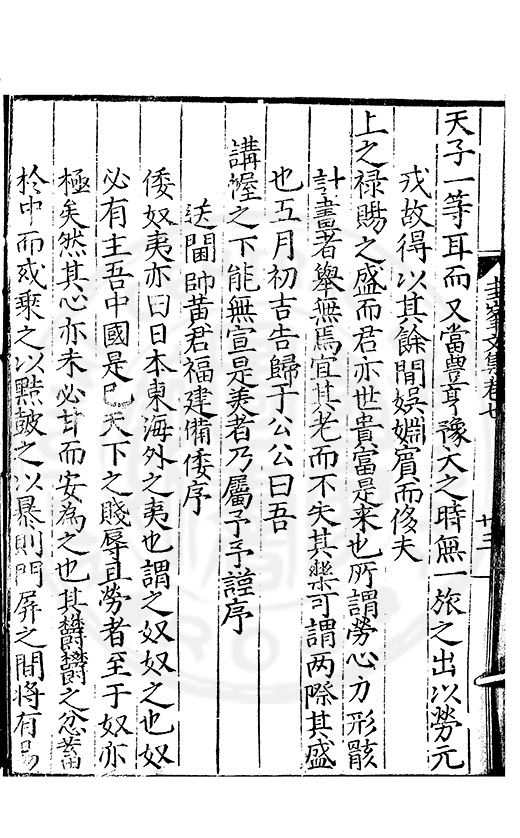 天子一等耳而又當豐亨豫大之時無一旅之出以勞元
戎故得以其餘閒娛嫺賓而侈夫
上之祿賜之盛而君亦世貴富是来也所謂勞心力形骸
計畫者舉無焉宜其老而不失其樂可謂两際其盛
也五月初吉告歸于公公曰吾
講幄之下能無宣是美者乃屬予予謹序
送閫帥黄君福建備倭序
倭奴夷亦曰日本東海外之夷也謂之奴奴之也奴
必有主吾中國是已天下之賤辱且勞者至于奴亦
極矣然其心亦未必甘而安為之也其欝欝之忿蓄
扵中而或乘之以點皷之以暴則門屏之間將有
文集卷七